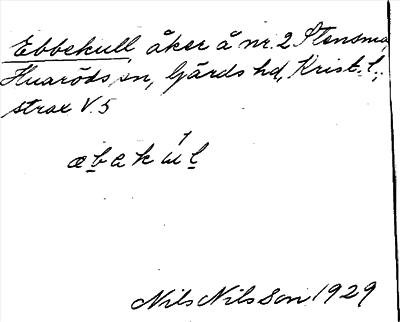 Ebbekull, åker å nr. 2 Stensma,
Huaröds sn, Gärds hd, Krist. l.,
strax V. 5
æbakúl
Nils Nilsson 1929